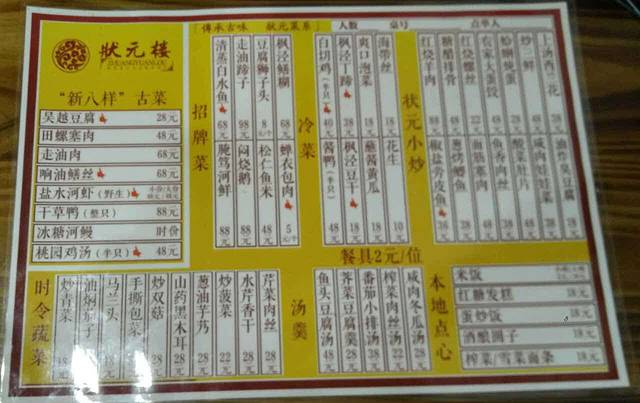 「传承古味 状元菜系」 人数 桌号 点单人
状元楼
ZHUANGYUANLOU
"新八样"古菜
吴越豆腐 28元
田螺塞肉 48元
走油肉 68元
响油鳝丝 68元
盐水河虾(野生)
干草鸭(整只) 88元
冰糖河鳗 时价
桃园鸡汤(半只) 48元
招牌菜
清蒸白水鱼 68元
走油蹄子 98元
豆腐狮子头 8元/个
枫泾鳝糊 68元
腌笃河鲜 88元
闷烧鹅 98元
松仁鱼米 88元
蝉衣包肉 5元/个
冷菜
白切鸡(半只) 40元
枫泾丁蹄 38元
爽口泡菜 10元
海带丝 18元
酱鸭(半只) 48元
枫泾豆干 18元
蘸酱黄瓜 18元
花生 10元
状元小炒
红烧羊肉
糖醋排骨 48
红烧螺丝
农家大蛋饺
蛤蜊炖蛋
炒三鲜
上汤西兰花
椒盐旁皮鱼 36
葱烤鲫鱼 38
面筋塞肉
鱼香肉丝
酸菜肚片
油炸臭豆腐
餐具2元/位
时令蔬菜
炒青菜 18元
油焖茄子
马兰头
手撕包菜
炒双菇
山药黑木耳 28元
葱油芋艿 28元
炒菠菜 22元
水芹香干 28元
芹菜肉丝 28元
汤羹
鱼头豆腐汤 48元
荠菜豆腐羹 28元
番加小排汤 38元
榨菜肉丝汤 22元
咸肉冬瓜汤 28元
本地点心
米饭
红糖发糕 18元
蛋炒饭 18元
酒酿圆子 18元
榨菜/雪菜面条 18元